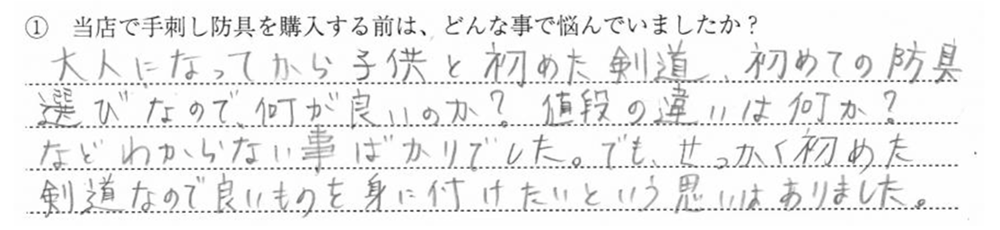 ① 当店で手刺し防具を購入する前は、どんな事で悩んでいましたか？
大人になってから子供と初めた剣道、初めての防具
選びなので、何が良いのか？ 値段の違いは何か？
などわからない事ばかりでした。でも、せっかく初めた
剣道なので良いものを身に付けたいという思いはありました。